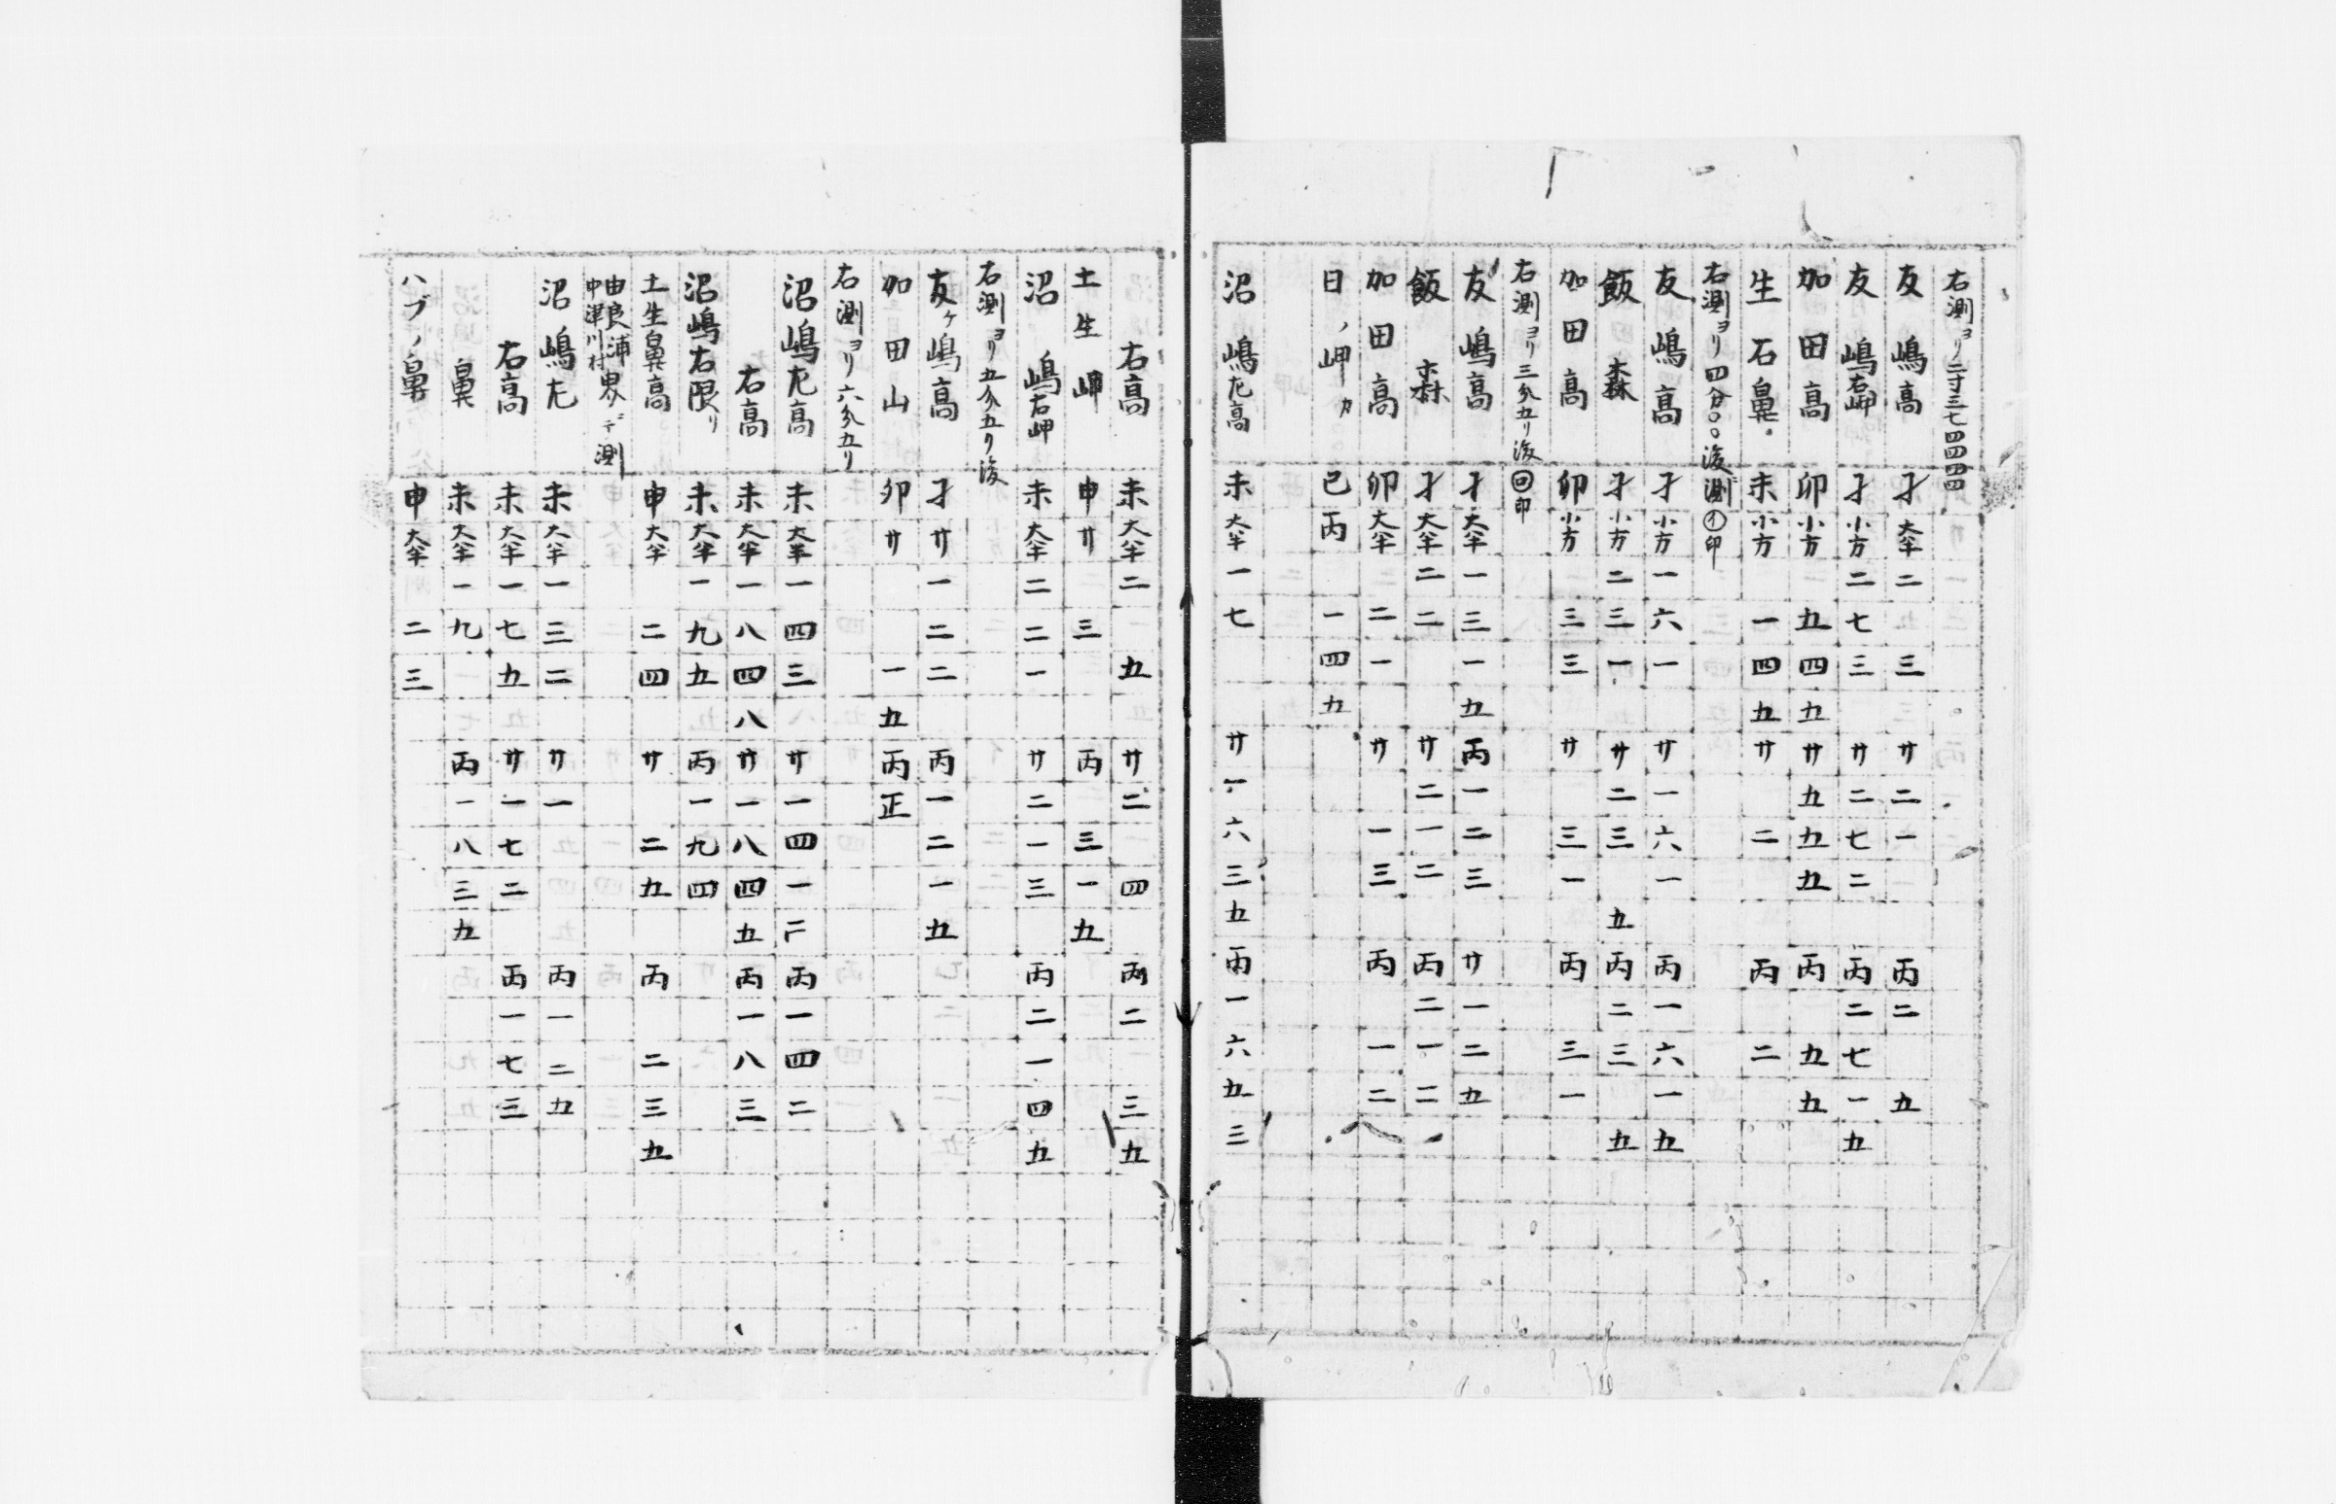 右測ヨリ二寸三七四四四四
友嶋高 子大半二 三 廾二一 丙二 五
友嶋右岬 子小方二七三 廾二七二 丙二七一五
加田高 卯小方 五四五 廾五五五 丙 五五
生石鼻 未小方 一四五 廾 二 丙 二
右測ヨリ四分〇〇後測㋑印
友嶋高 子小方一六一 廾一六一 丙一六一五
飯森 子小方二三一 廾二三 五 丙二三 五
加田高 卯小方 三三 廾 三一 丙 三一
右測ヨリ三分五リ後㋺印
友嶋高 子大半一三一五 丙一二三 廾一二五
飯森 子大半二二 廾二一二 丙二一二
加田高 卯大半 二一 廾 一三 丙 一二
日ノ岬カ 巳丙 一四五
沼嶋左高 未大半一七 廾一六三五 丙一六五三
右高 未大半二 五 廾二 四 丙二 三五
土生岬 申廾 三 丙 三一五
沼嶋右岬 未大半二二一 廾二一三 丙二一四五
右測ヨリ五分五リ後
友ケ嶋高 子廾一二二 丙一二一五
加田山 卯廾 一五 丙正
右測ヨリ六分五リ
沼嶋左高 未大半一四三 廾一四一二 丙一四二
右高 未大半一八四八 廾一八四五 丙一八三
沼嶋右限リ 未大半一九五 丙一九四
土生鼻高 申大半 二四 廾 二九 丙 二三五
由良浦中津川村界ニテ測
沼嶋左 未大半一三二 廾一 丙一二五
右高 未大半一七五 廾一七二 丙一七三
鼻 未大半一九 丙一八三五
ハブノ鼻 申大半 二三